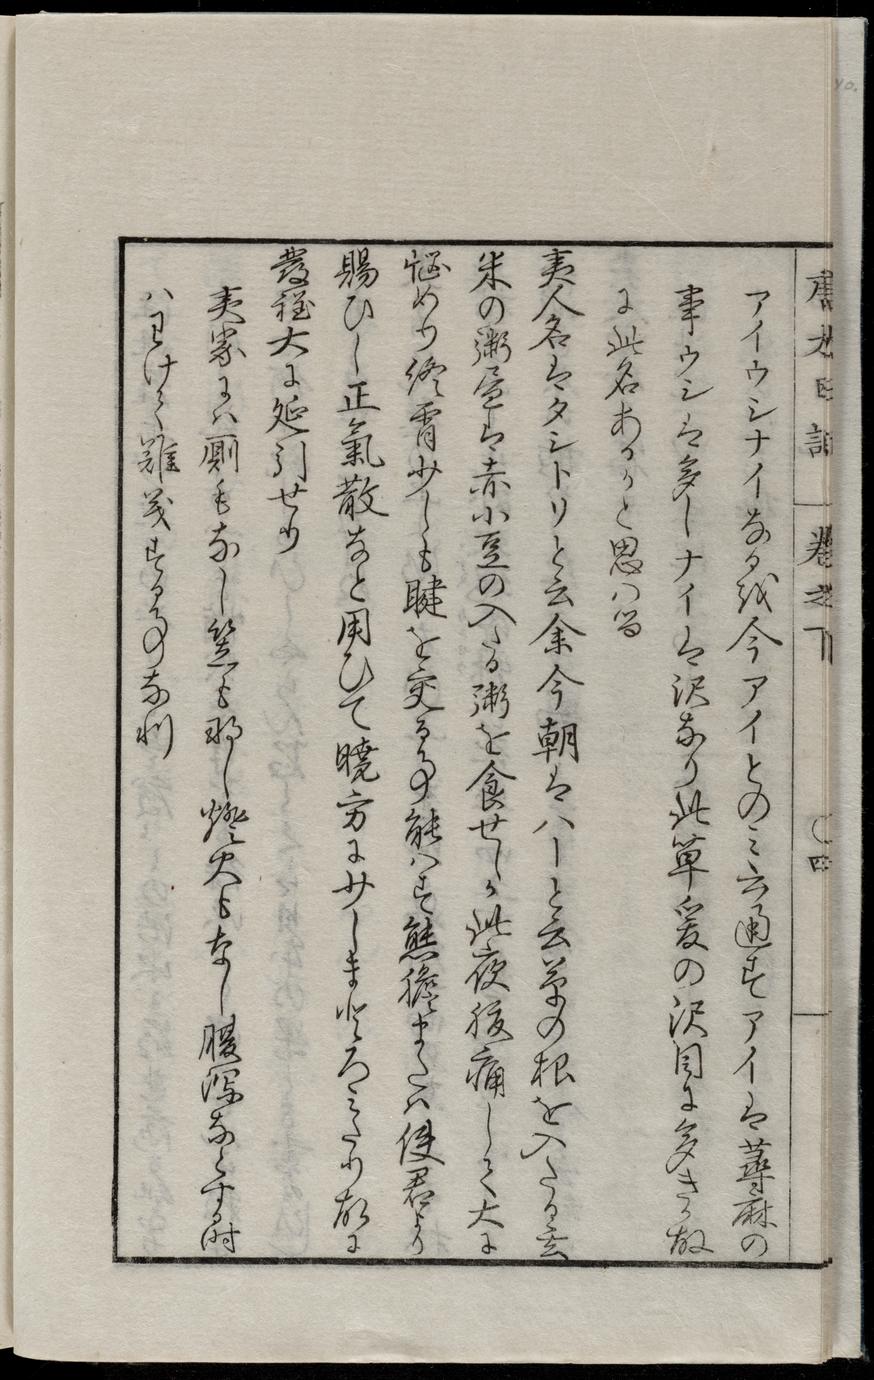 唐太日記 卷之下 ○四
アイウシナイなる哉今アイとのミ云通すアイは蕁麻の
事ウシは多しナイは沢なり此草爰の沢目に多きか故
に此名あるかと思はる
夷人名はタシトリと云余今朝はハーと云草の根を入たる玄
米の粥昼は赤小豆の入たる粥を食せしか此夜腹痛して大に
悩めり終霄少しも睫を交る事能はす熊膽または使君より
賜ひし正氣散なと用ひて曉方に少しまとろミたり故に
發程大に延引せり
夷家には厠もなし簊も那し燈火もなし腹瀉なとする時
ハわけて難義する事なり